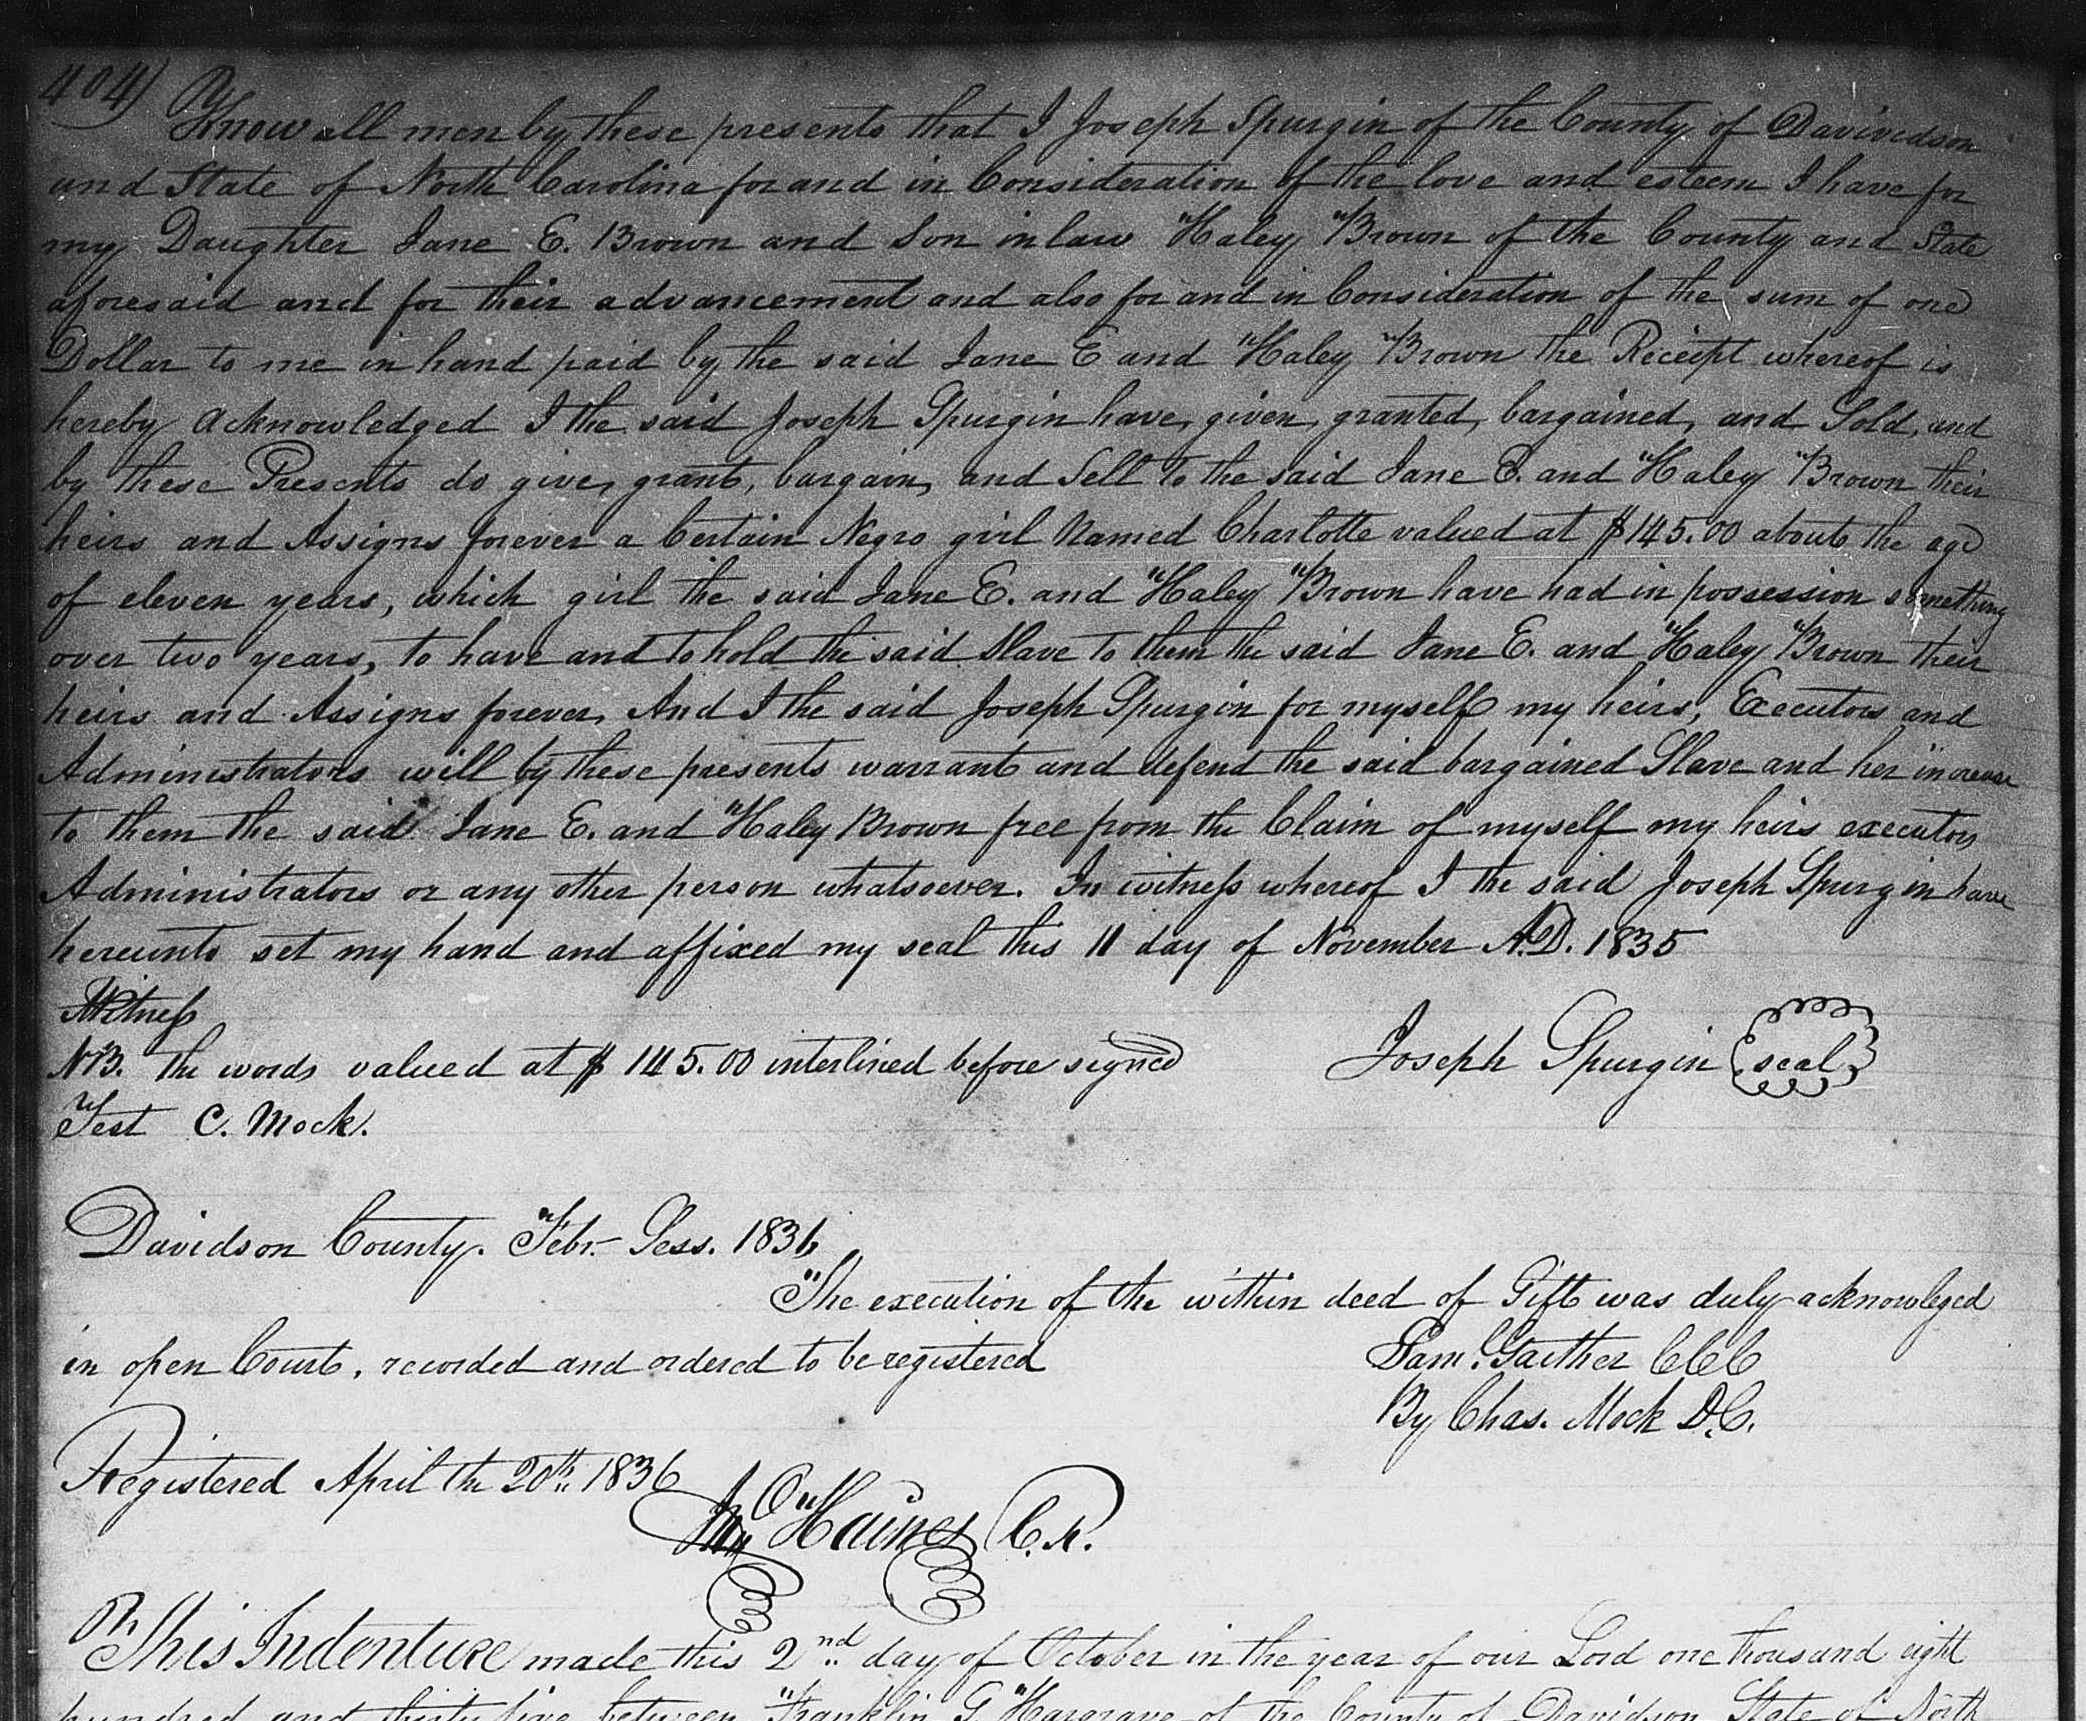 404)
Know all men by these presents that I Joseph Spurgin of the County of Davivdson
and State of North Carolina for and in Consideration of the love and esteem I have for
my Daughter Jane E. Brown and Son in law Haley Brown of the County and State
aforesaid and for their advancement and also for and in Consideration of the sum of one
Dollar to me in hand paid by the said Jane E and Haley Brown the Receipt whereof is
hereby acknowledged I the said Joseph Spurgin have, given, granted, bargained, and Sold, and
by these Presents do give, grant, bargain, and Sell to the said Jane E. and Haley Brown their
heirs and Assigns forever a Certain Negro girl Named Charlotte valued at $145.00 about the age
of eleven years, which girl the said Jane E. and Haley Brown have had in possession something
over two years, to have and to hold the said Slave to them the said Jane E. and Haley Brown their
heirs and Assigns forever, And I the said Joseph Spurgin for myself my heirs, Executors and
Administrators will by these presents warrant and defend the said bargained Slave and her increase
to them the said Jane E. and Haley Brown free from the Claim of myself my heirs executors
Administrators or any other person whatsoever. In witness whereof I the said Joseph Spurgin have
hereunto set my hand and affixed my seal this 11 day of November A.D. 1835
Witness
NB. the words valued at $145.00 interlined before signed Joseph Spurgin seal
Test C. Mock.
Davidson County. Febr. Sess. 1836
The execution of the within deed of Gift was duly acknowleged
in open Court, recorded and ordered to be registered Sam. Gaither CCC
By Chas. Mock D.C.
Registered April the 20th 1836
Haines C.R.
This Indenture made this 2nd day of October in the year of our Lord one thousand eight
hundred and thirty five between Franklin G Hargrave of the County of Davidson State of North